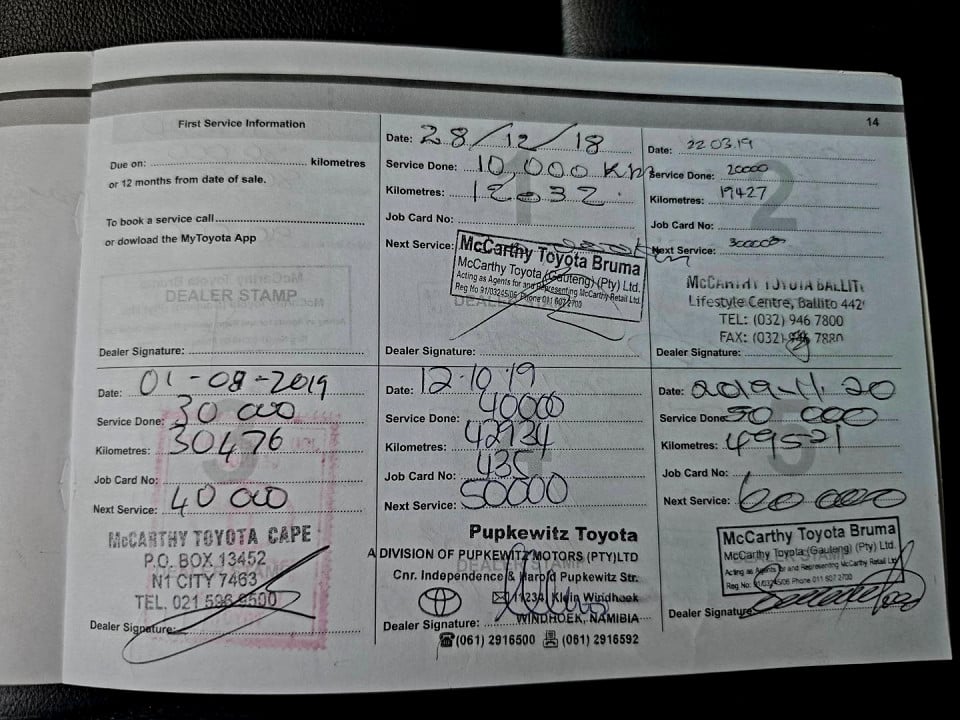 First Service Information
14
Due on: kilometres
or 12 months from date of sale.
To book a service call
or dowload the MyToyota App
DEALER STAMP
Dealer Signature:
1
Date: 28/12/18
Service Done: 10,000 Km
Kilometres:
Job Card No:
Next Service:
McCarthy Toyota Bruma
McCarthy Toyota (Gauteng) (Pty) Ltd.
Acting as Agents for and Representing McCarthy Retail Ltd.
Reg No 91/03245/06 Phone 011 607 2700
Dealer Signature:
2
Date: 22.03.19
Service Done: 20000
Kilometres: 19427
Job Card No:
Next Service:
McCARTHY TOYOTA BALLIT
Lifestyle Centre, Ballito 442
TEL: (032) 946 7800
FAX: (032) 946 7880
Dealer Signature:
3
Date: 01-08-2019
Service Done: 30 000
Kilometres: 30476
Job Card No:
Next Service: 40 000
McCARTHY TOYOTA CAPE
P.O. BOX 13452
N1 CITY 7463
TEL. 021 596 9500
Dealer Signature:
Date: 12.10.19
Service Done: 40000
Kilometres: 42934
Job Card No: 435
Next Service: 50000
Pupkewitz Toyota
A DIVISION OF PUPKEWITZ MOTORS (PTY) LTD
Cnr. Independence & Harold Pupkewitz Str.
11234, Klein Windhoek
WINDHOEK, NAMIBIA
Dealer Signature:
(061) 2916500 (061) 2916592
5
Date: 2019-11.20
Service Done: 50 000
Kilometres: 49521
Job Card No:
Next Service: 60 000
McCarthy Toyota Bruma
McCarthy Toyota (Gauteng) (Pty) Ltd.
Acting as Agents for and Representing McCarthy Retail Ltd.
Reg No: 91/03245/06 Phone 011 607 2700
Dealer Signature